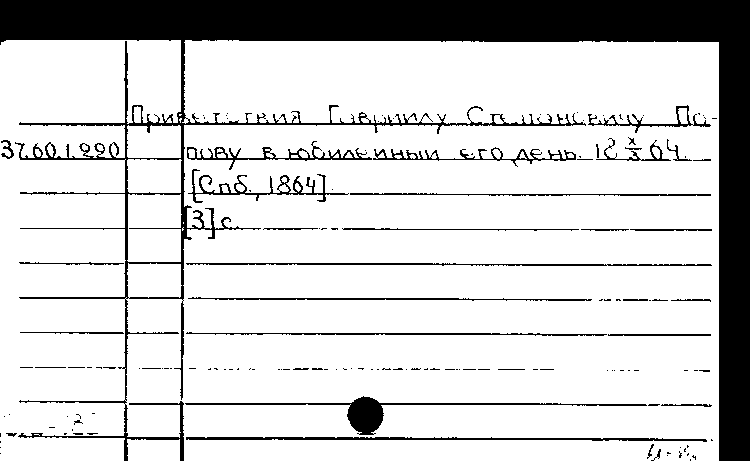 Приветствия Гавриилу Степановичу По-
37.60.1.220 пову в юбилейный его день. 18 X/3 64.
[Спб., 1864]
[3] с.